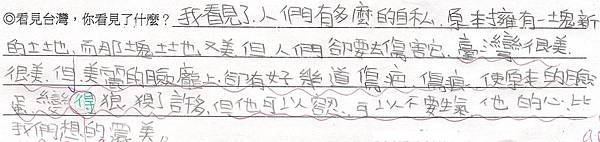 ◎看見台灣，你看見了什麼？我看見了人們有多麼的自私，原本擁有一塊新
的土地，而那塊土地又美但人們卻要去傷害它，臺灣很美，
很美，但美麗的臉龐上，卻有好幾道傷疤，傷痕，使原本的臉
變得狼狽了許多，但他可以容忍，可以不要生氣，他的心比
我們想的還美。